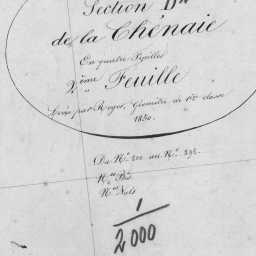 Section D.
de la Chênaie
En quatre Feuilles
2.ème Feuille
Levée par Roger, Géomètre de 1re classe
1830.
Du N.° 200 au N.° 292.
N.os Bis
N.os Nuls
1
2000